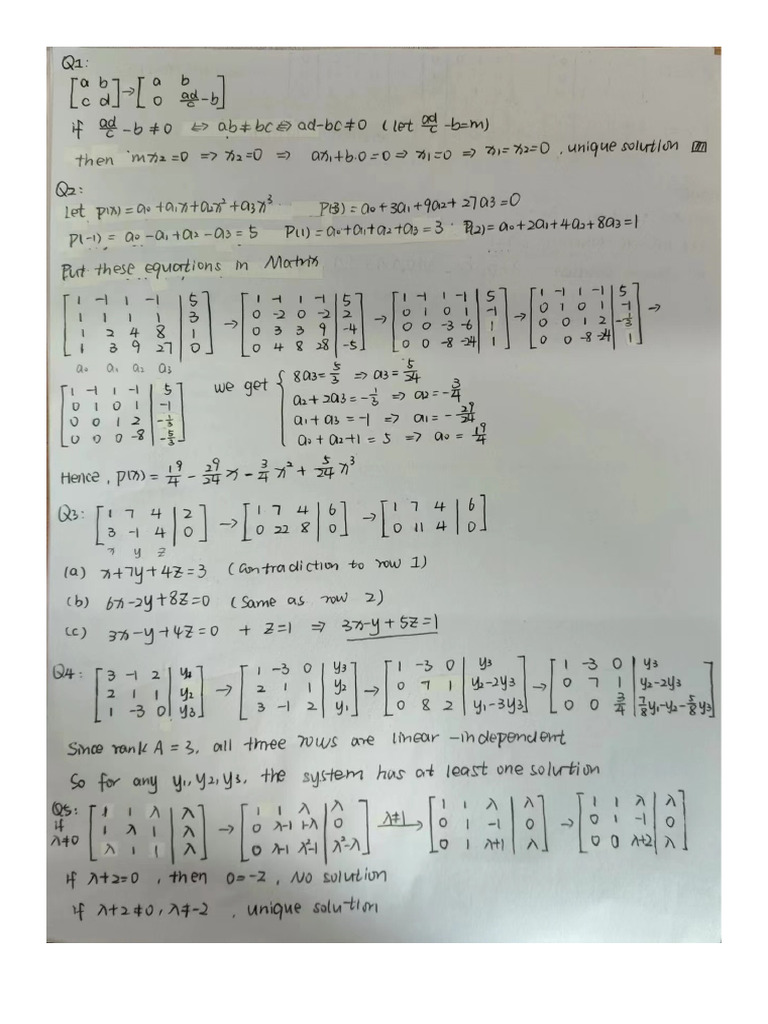 Q1:
[a b; c d] → [a b; 0 ad/c -b]
if ad/c -b ≠ 0 ⇔ ab ≠ bc ⇔ ad-bc ≠ 0 (let ad/c -b=m)
then mx₂=0 ⇒ x₂=0 ⇒ ax₁+b·0=0 ⇒ x₁=0 ⇒ x₁=x₂=0, unique solution
Q2:
Let p(x)=a₀+a₁x+a₂x²+a₃x³ P(3)=a₀+3a₁+9a₂+27a₃=0
P(-1)=a₀-a₁+a₂-a₃=5 P(1)=a₀+a₁+a₂+a₃=3 P(2)=a₀+2a₁+4a₂+8a₃=1
Put these equations in Matrix
[1 -1 1 -1 | 5; 1 1 1 1 | 3; 1 2 4 8 | 1; 1 3 9 27 | 0] → [1 -1 1 -1 | 5; 0 -2 0 -2 | 2; 0 3 3 9 | -4; 0 4 8 28 | -5] → [1 -1 1 -1 | 5; 0 1 0 1 | -1; 0 0 -3 -6 | 1; 0 0 -8 -24 | 1] → [1 -1 1 -1 | 5; 0 1 0 1 | -1; 0 0 1 2 | -1/3; 0 0 -8 -24 | 1] →
a₀ a₁ a₂ a₃
[1 -1 1 -1 | 5; 0 1 0 1 | -1; 0 0 1 2 | -1/3; 0 0 0 -8 | -5/3] we get
8a₃=5/3 ⇒ a₃=5/24
a₂+2a₃=-1/3 ⇒ a₂=-3/4
a₁+a₃=-1 ⇒ a₁=-29/24
a₀+a₂+1=5 ⇒ a₀=19/4
Hence, p(x)=19/4 - 29/24 x - 3/4 x² + 5/24 x³
Q3: [1 7 4 | 2; 3 -1 4 | 0] → [1 7 4 | 6; 0 22 8 | 0] → [1 7 4 | 6; 0 11 4 | 0]
x y z
(a) x+7y+4z=3 (contradiction to row 1)
(b) 6x-2y+8z=0 (same as row 2)
(c) 3x-y+4z=0 + z=1 ⇒ 3x-y+5z=1
Q4: [3 -1 2 | y₁; 2 1 1 | y₂; 1 -3 0 | y₃] → [1 -3 0 | y₃; 2 1 1 | y₂; 3 -1 2 | y₁] → [1 -3 0 | y₃; 0 7 1 | y₂-2y₃; 0 8 2 | y₁-3y₃] → [1 -3 0 | y₃; 0 7 1 | y₂-2y₃; 0 0 3/4 | 7/8y₁-y₂-5/8y₃]
Since rank A = 3, all three rows are linear-independent
So for any y₁, y₂, y₃, the system has at least one solution
Q5: if λ≠0 [1 1 λ | λ; 1 λ 1 | λ; λ 1 1 | λ] → [1 1 λ | λ; 0 λ-1 1-λ | 0; 0 λ-1 λ²-1 | λ²-λ] λ≠1 → [1 1 λ | λ; 0 1 -1 | 0; 0 1 λ+1 | λ] → [1 1 λ | λ; 0 1 -1 | 0; 0 0 λ+2 | λ]
if λ+2=0, then 0=-2, No solution
if λ+2≠0, λ≠-2, unique solution